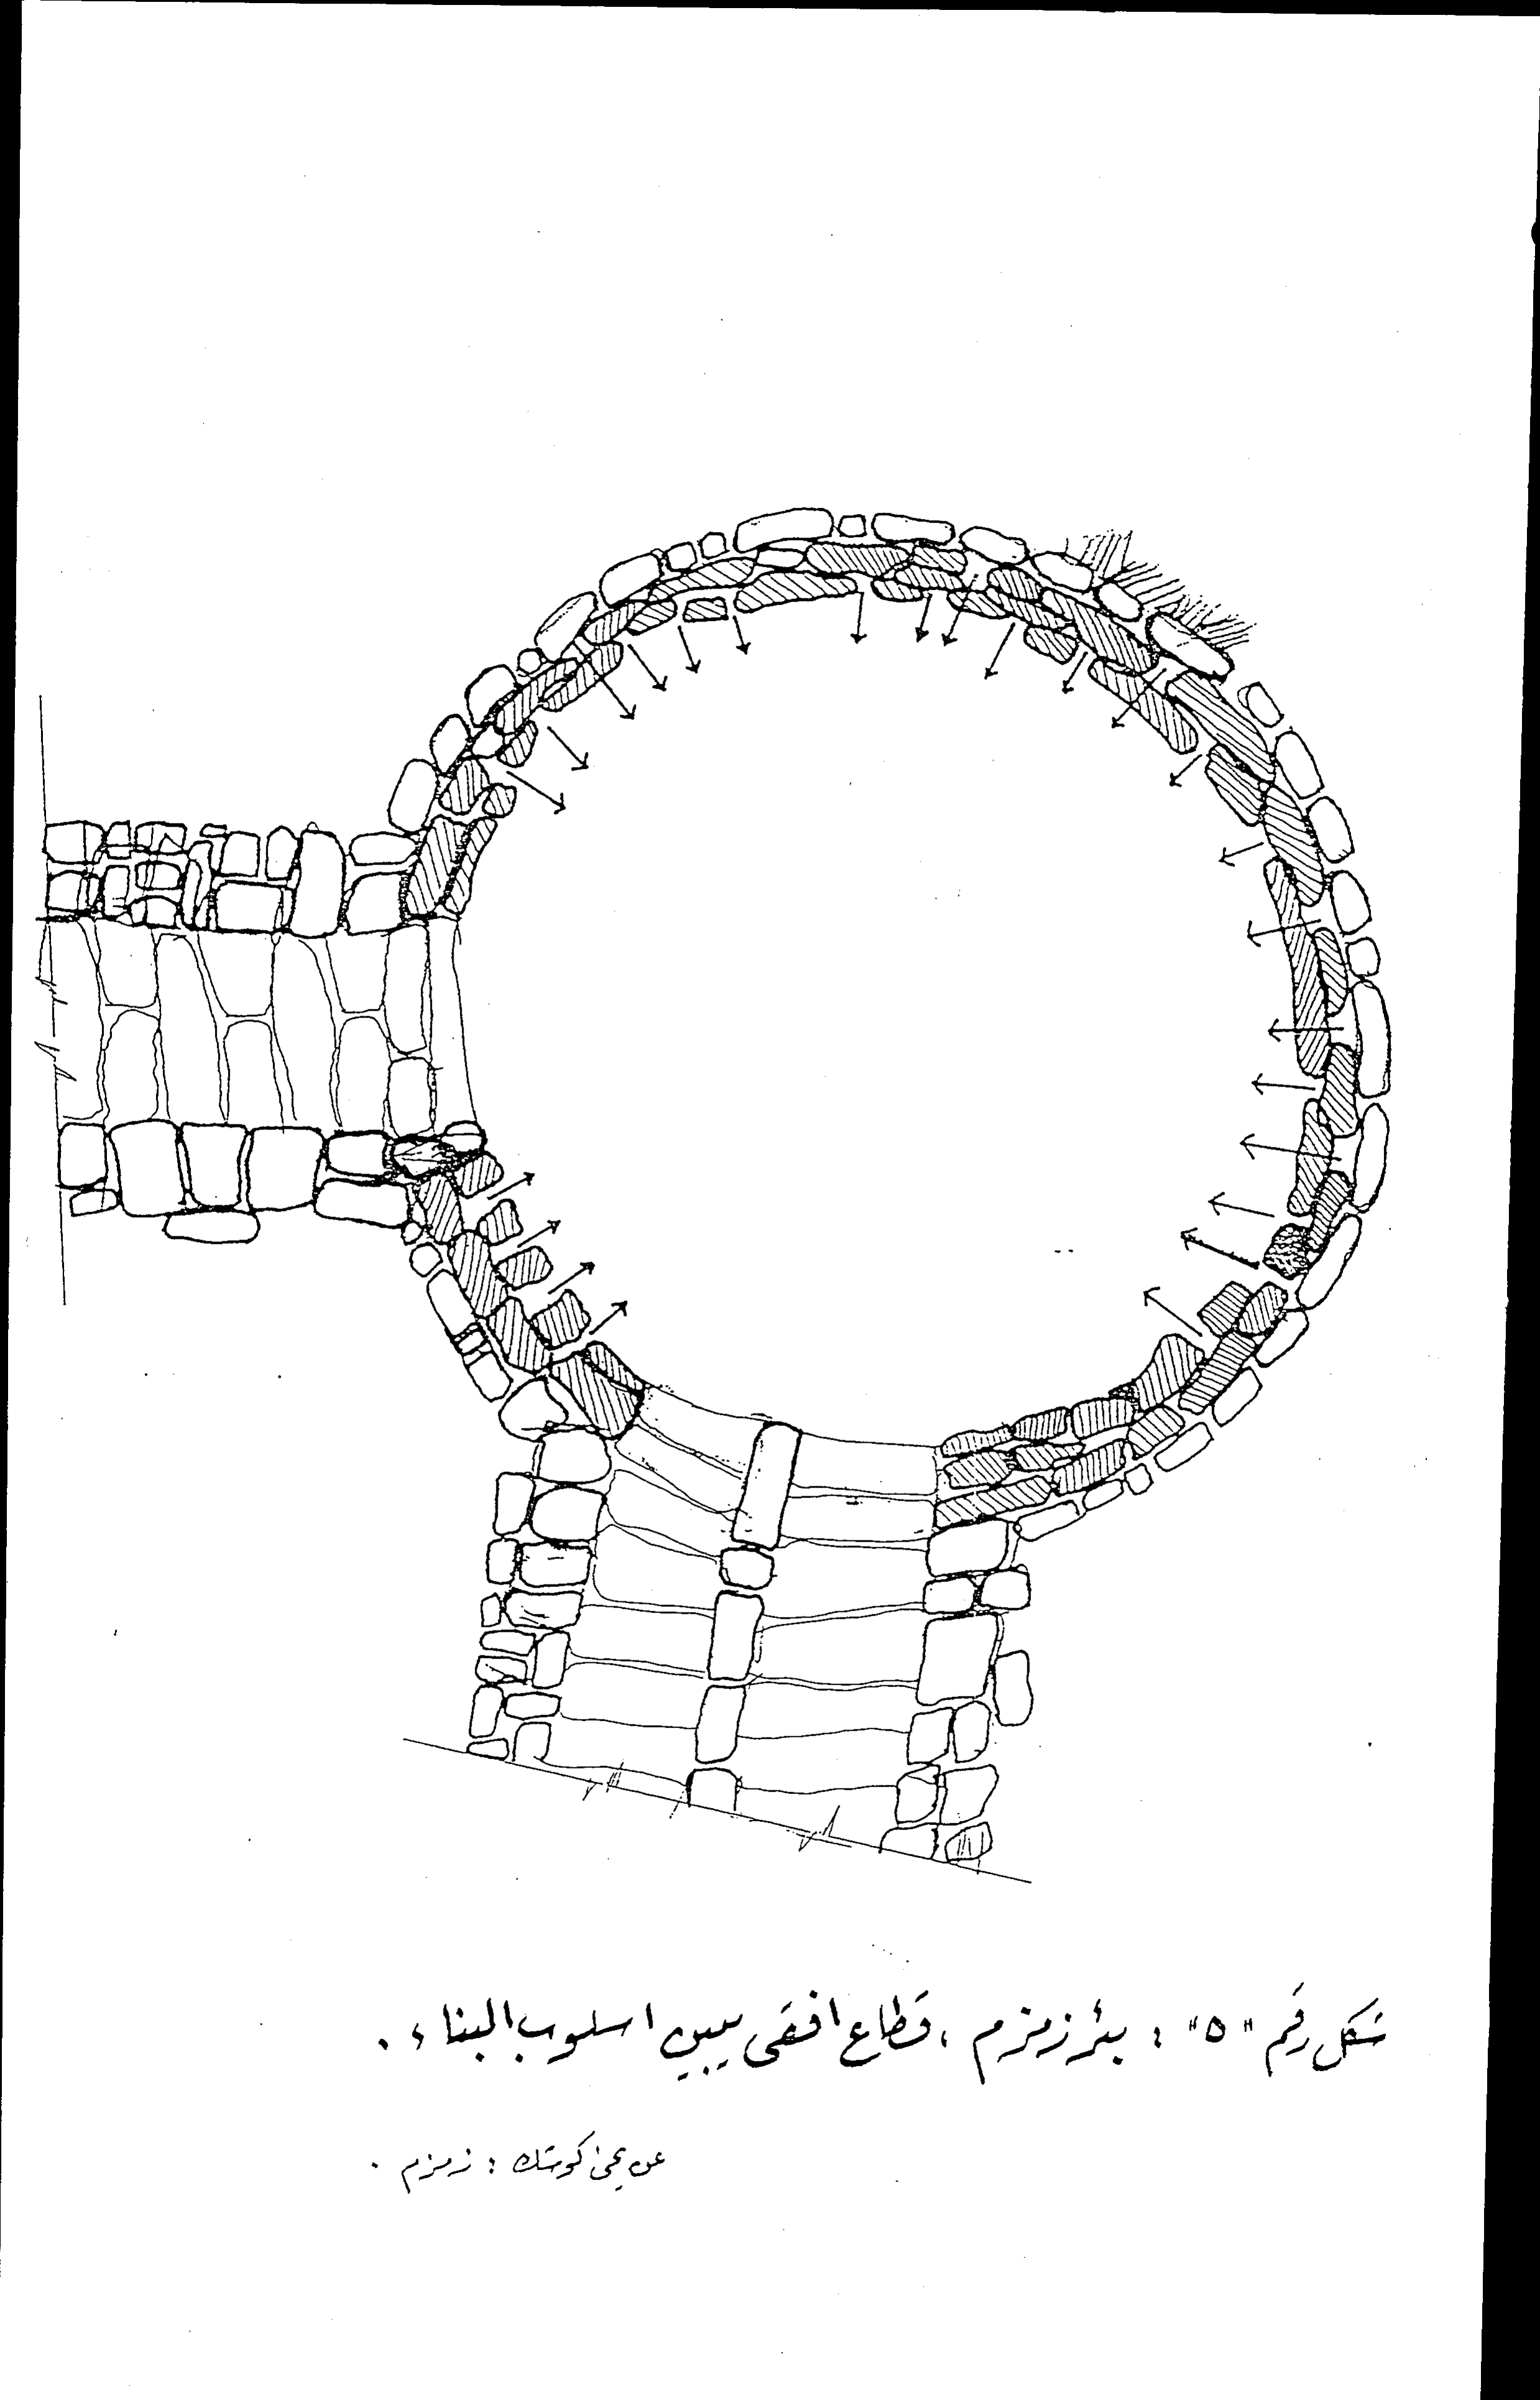 شكل رقم "٥" : بئر زمزم ، قطاع افقى يبين اسلوب البناء .
عن يحي كوشك : زمزم .